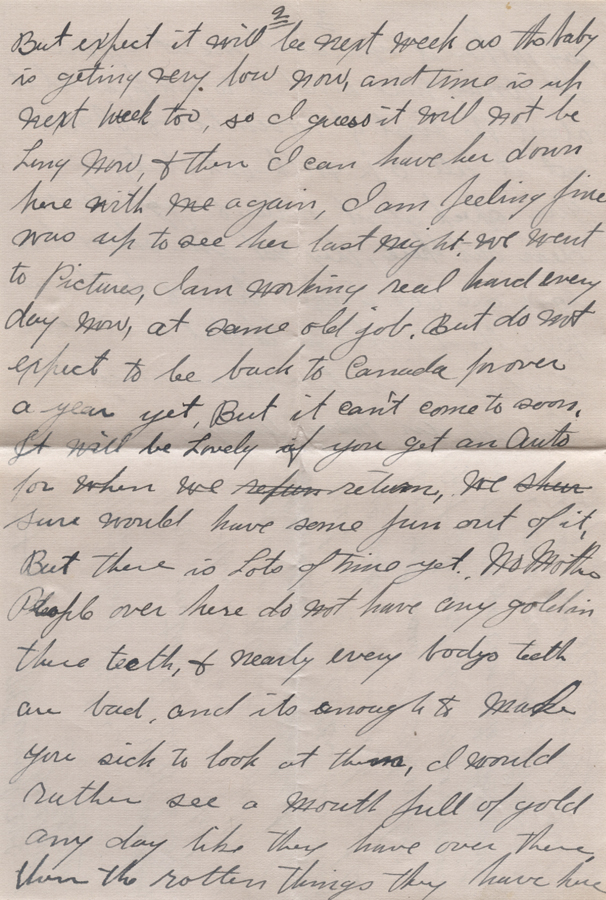 2
But expect it will be next week as the baby
is geting very low now, and time is up
next week too, so I guess it will not be
Long now, & then I can have her down
here with me again, I am feeling fine
was up to see her last night, we went
to Pictures, I am working real hard every
day now, at same old job. But do not
expect to be back to Canada for over
a year yet, But it can't come to soon.
It will be Lovely if you get an Auto
for when we refurn return, we shur
sure would have some fun out of it,
But there is Lots of time yet. No Mother
People over here do not have any gold in
there teeth, & nearly every bodys teeth
are bad, and its enough to make
you sick to look at them, I would
rather see a mouth full of gold
any day like they have over there,
then the rotten things they have here